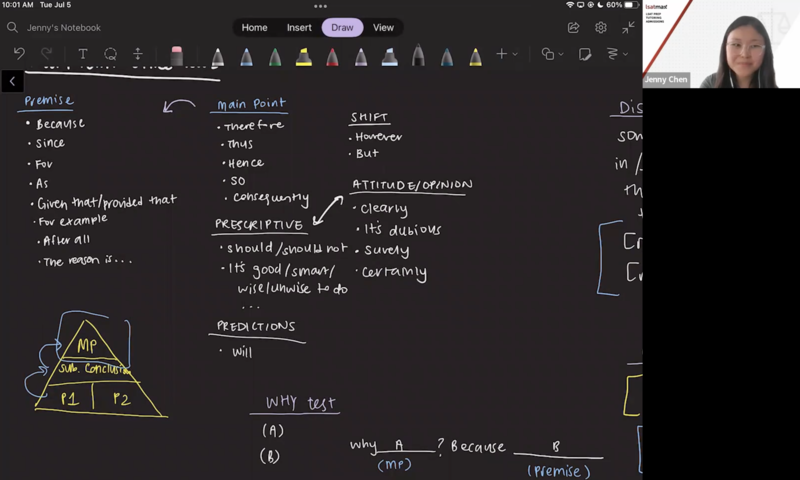 10:01 AM Tue Jul 5
60%
Jenny's Notebook
Home Insert Draw View
lsatmax
LSAT PREP
TUTORING
ADMISSIONS
Jenny Chen
Premise
• Because
• Since
• For
• As
• Given that/provided that
• For example
• After all
• The reason is...
Main Point
• Therefore
• Thus
• Hence
• So
• Consequently
PRESCRIPTIVE
• should/should not
• It's good/smart/
wise/unwise to do
...
PREDICTIONS
• will
SHIFT
• However
• But
ATTITUDE/OPINION
• clearly
• It's dubious
• surely
• certainly
Dis
som
in/
th
MP
Sub. Conclusion
P1 P2
WHY test
(A)
(B)
why A ? Because B
(MP) (Premise)